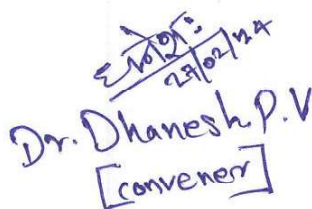 धनेशः
27/02/24
Dr. Dhanesh. P. V
[convener]